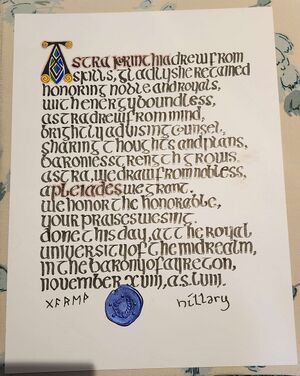 Astra Jorinthia drew from
spills, gladly she retained
honoring noble and royals,
with energy boundless,
astra drew from mind,
brightly advising counsel,
sharing thoughts and plans,
baroness strength grows.
astra, we draw from nobless,
a pleiades we grant.
we honor the honorable,
your praises we sing.
done this day, at the royal
university of the midrealm,
in the barony of ayreton,
november xviii, a.s. lviii.
hillary